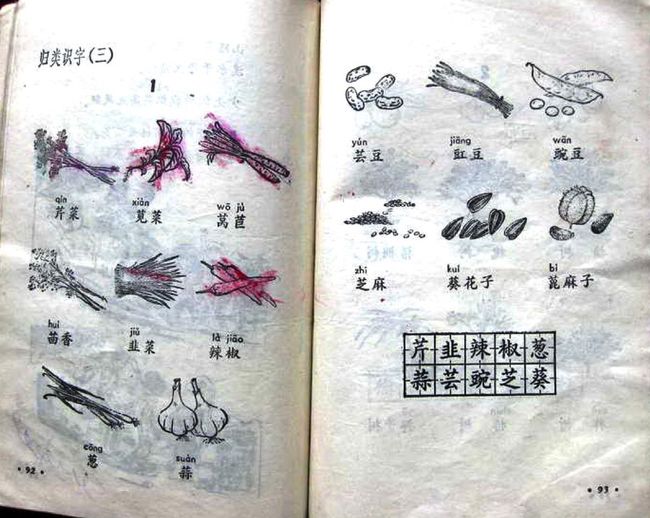 归类识字(三)
1
qín xiàn wō jù
芹菜 苋菜 莴苣
huí jiǔ là jiāo
茴香 韭菜 辣椒
cōng suàn
葱 蒜
·92·
yún jiāng wān
芸豆 豇豆 豌豆
zhī kuí bì
芝麻 葵花子 蓖麻子
芹韭辣椒葱
蒜芸豌芝葵
·93·